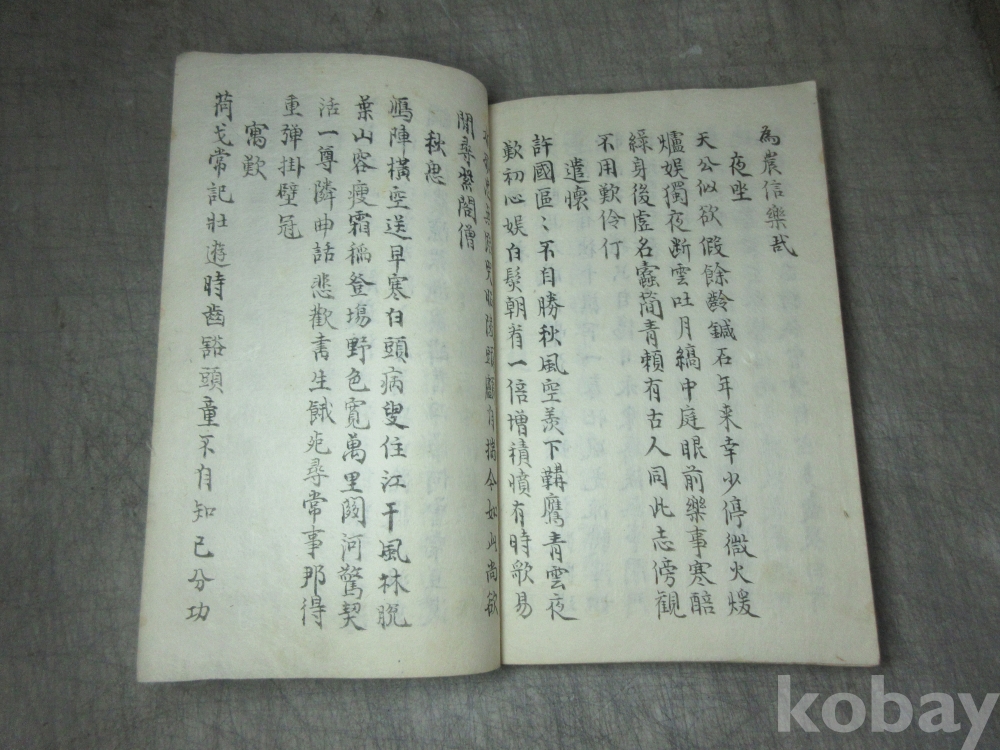 為農信樂哉
夜坐
天公似欲假餘齡鍼石年来幸少停微火煖
爐娛獨夜断雲吐月縞中庭眼前樂事寒醅
緑身後虗名蠹簡青頼有古人同此志傍觀
不用歎伶仃
遣懷
許國區〻不自勝秋風空羨下鞲鷹青雲夜
歎初心娱白髮朝看一倍增積憤有時歌易
尚欲
閒尋紫閣僧
秋思
鴈陣橫空送早寒白頭病叟住江干風林脫
葉山容瘦霜稱登場野色寛萬里関河驚契
活一尊隣曲話悲歡書生餓死尋常事那得
重彈掛壁冠
寓歎
荷戈常記壮遊時齒豁頭童不自知已分功
kobay